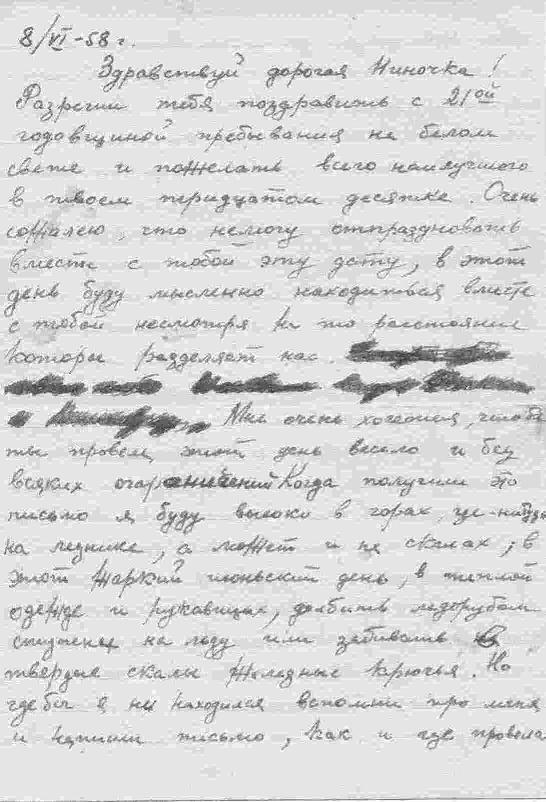 8/VI-58 г.
Здравствуй дорогая Ниночка!
Разреши тебя поздравить с 21ой
годовщиной пребывания на белом
свете и пожелать всего наилучшого
в твоем тридцатом десятке. Очень
сожалею, что немогу отпраздновать
вместе с тобой эту дату, в этот
день буду мысленно находиться вместе
с тобой несмотря на то расстояние
которы разделяет нас.
Мне очень хочется, чтобы
ты провела этот день весело и без
всяких ограничений Когда получиш это
письмо я буду высоко в горах, где-нибудь
на леднике, а может и на скалах; в
этот жаркий июньский день, в теплой
одежде и рукавицах, долбить ледорубом
ступеньки на льду или забивать в
твердые скалы железные крючья. Но
где бы я ни находился вспомни про меня
и напиши письмо, как и где провела